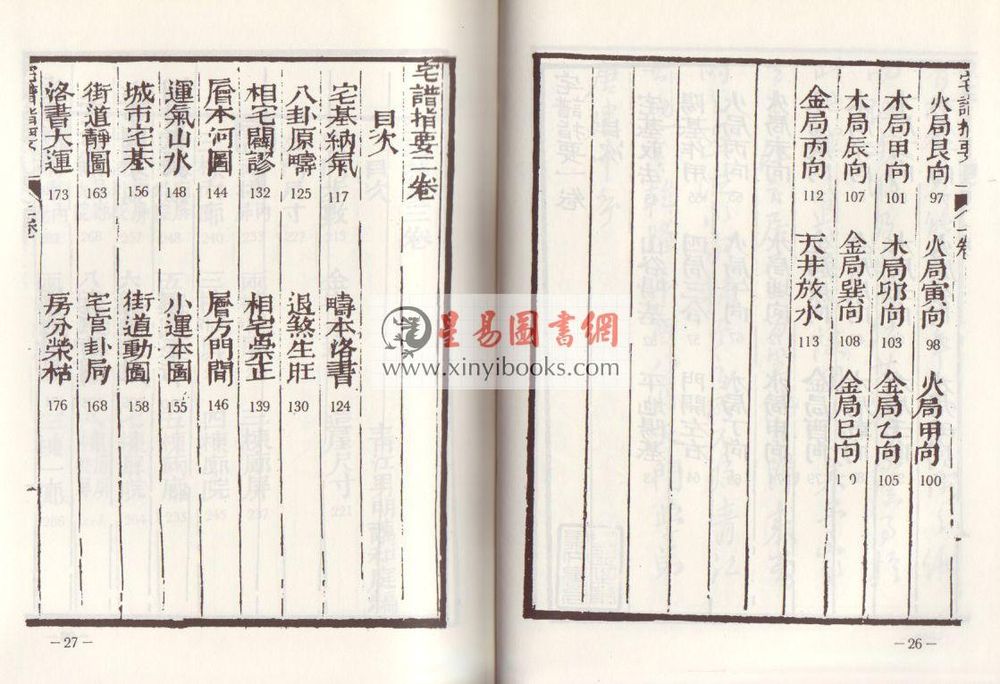 宅譜指要
一卷
火局艮向 97 火局寅向 98 火局甲向 100
木局甲向 101 木局卯向 103 金局乙向 105
木局辰向 107 金局巽向 108 金局巳向
金局丙向 112 天井放水 113
—26—
宅譜指要二卷
目次
宅基納氣 117 疇本洛書 124
八卦原疇 125 退煞生旺 130
相宅闢謬 132 相宅烝正 139
層本河圖 144 層方門間 146
運氣山水 148 小運本圖 155
城市宅基 156 街道動圖 158
街道靜圖 163 宅宫卦局 168
洛書大運 173 房分榮枯 176
宅譜指要
二卷
—27—
星易圖書網
www.xinyibooks.com